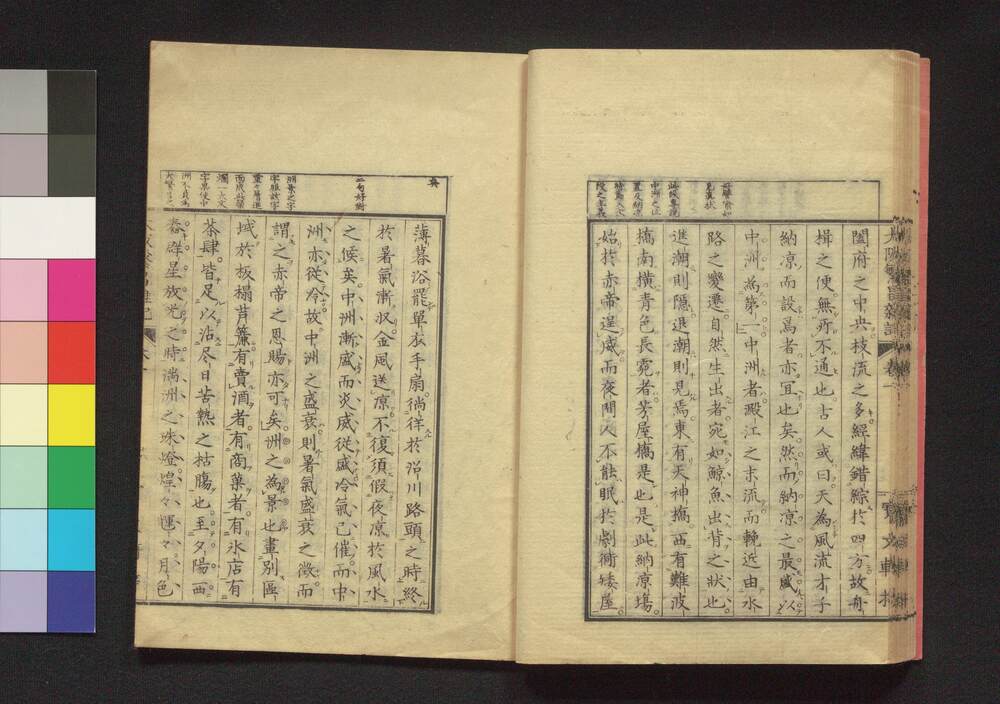 闔府之中央枝流之多經緯錯綜於四方故舟
楫之便無所不通也古人或曰天為風流才子
納凉而設焉者亦宜也矣然而納凉之最盛以
中洲為第一中洲者澱江之末流而輓近由水
路之變遷自然生出者宛如鯨魚出背之狀也
進潮則隱退潮則見焉東有天神橋西有難波
橋南橫青色長霓者芳屋橋是也是此納凉場
始於赤帝逞威而夜間人不能眠於劇衕矮屋
薄暮浴罷單衣手扇徜徉於沿川路頭之時終
於暑氣漸收金風送凉不復須假夜凉於風水
之候矣中洲漸盛而炎威從盛冷氣已催而中
洲亦從冷故中洲之盛衰則暑氣盛衰之徵而
謂之赤帝之恩賜亦可矣洲之為景也畫別區
域於板榻芦簾有賣酒者有商菓者有氷店有
茶肆皆足以沾尽日苦熱之枯膓也至夕陽西
舂群星放光之時滿洲之珠燈煌々運々月色
二句好對